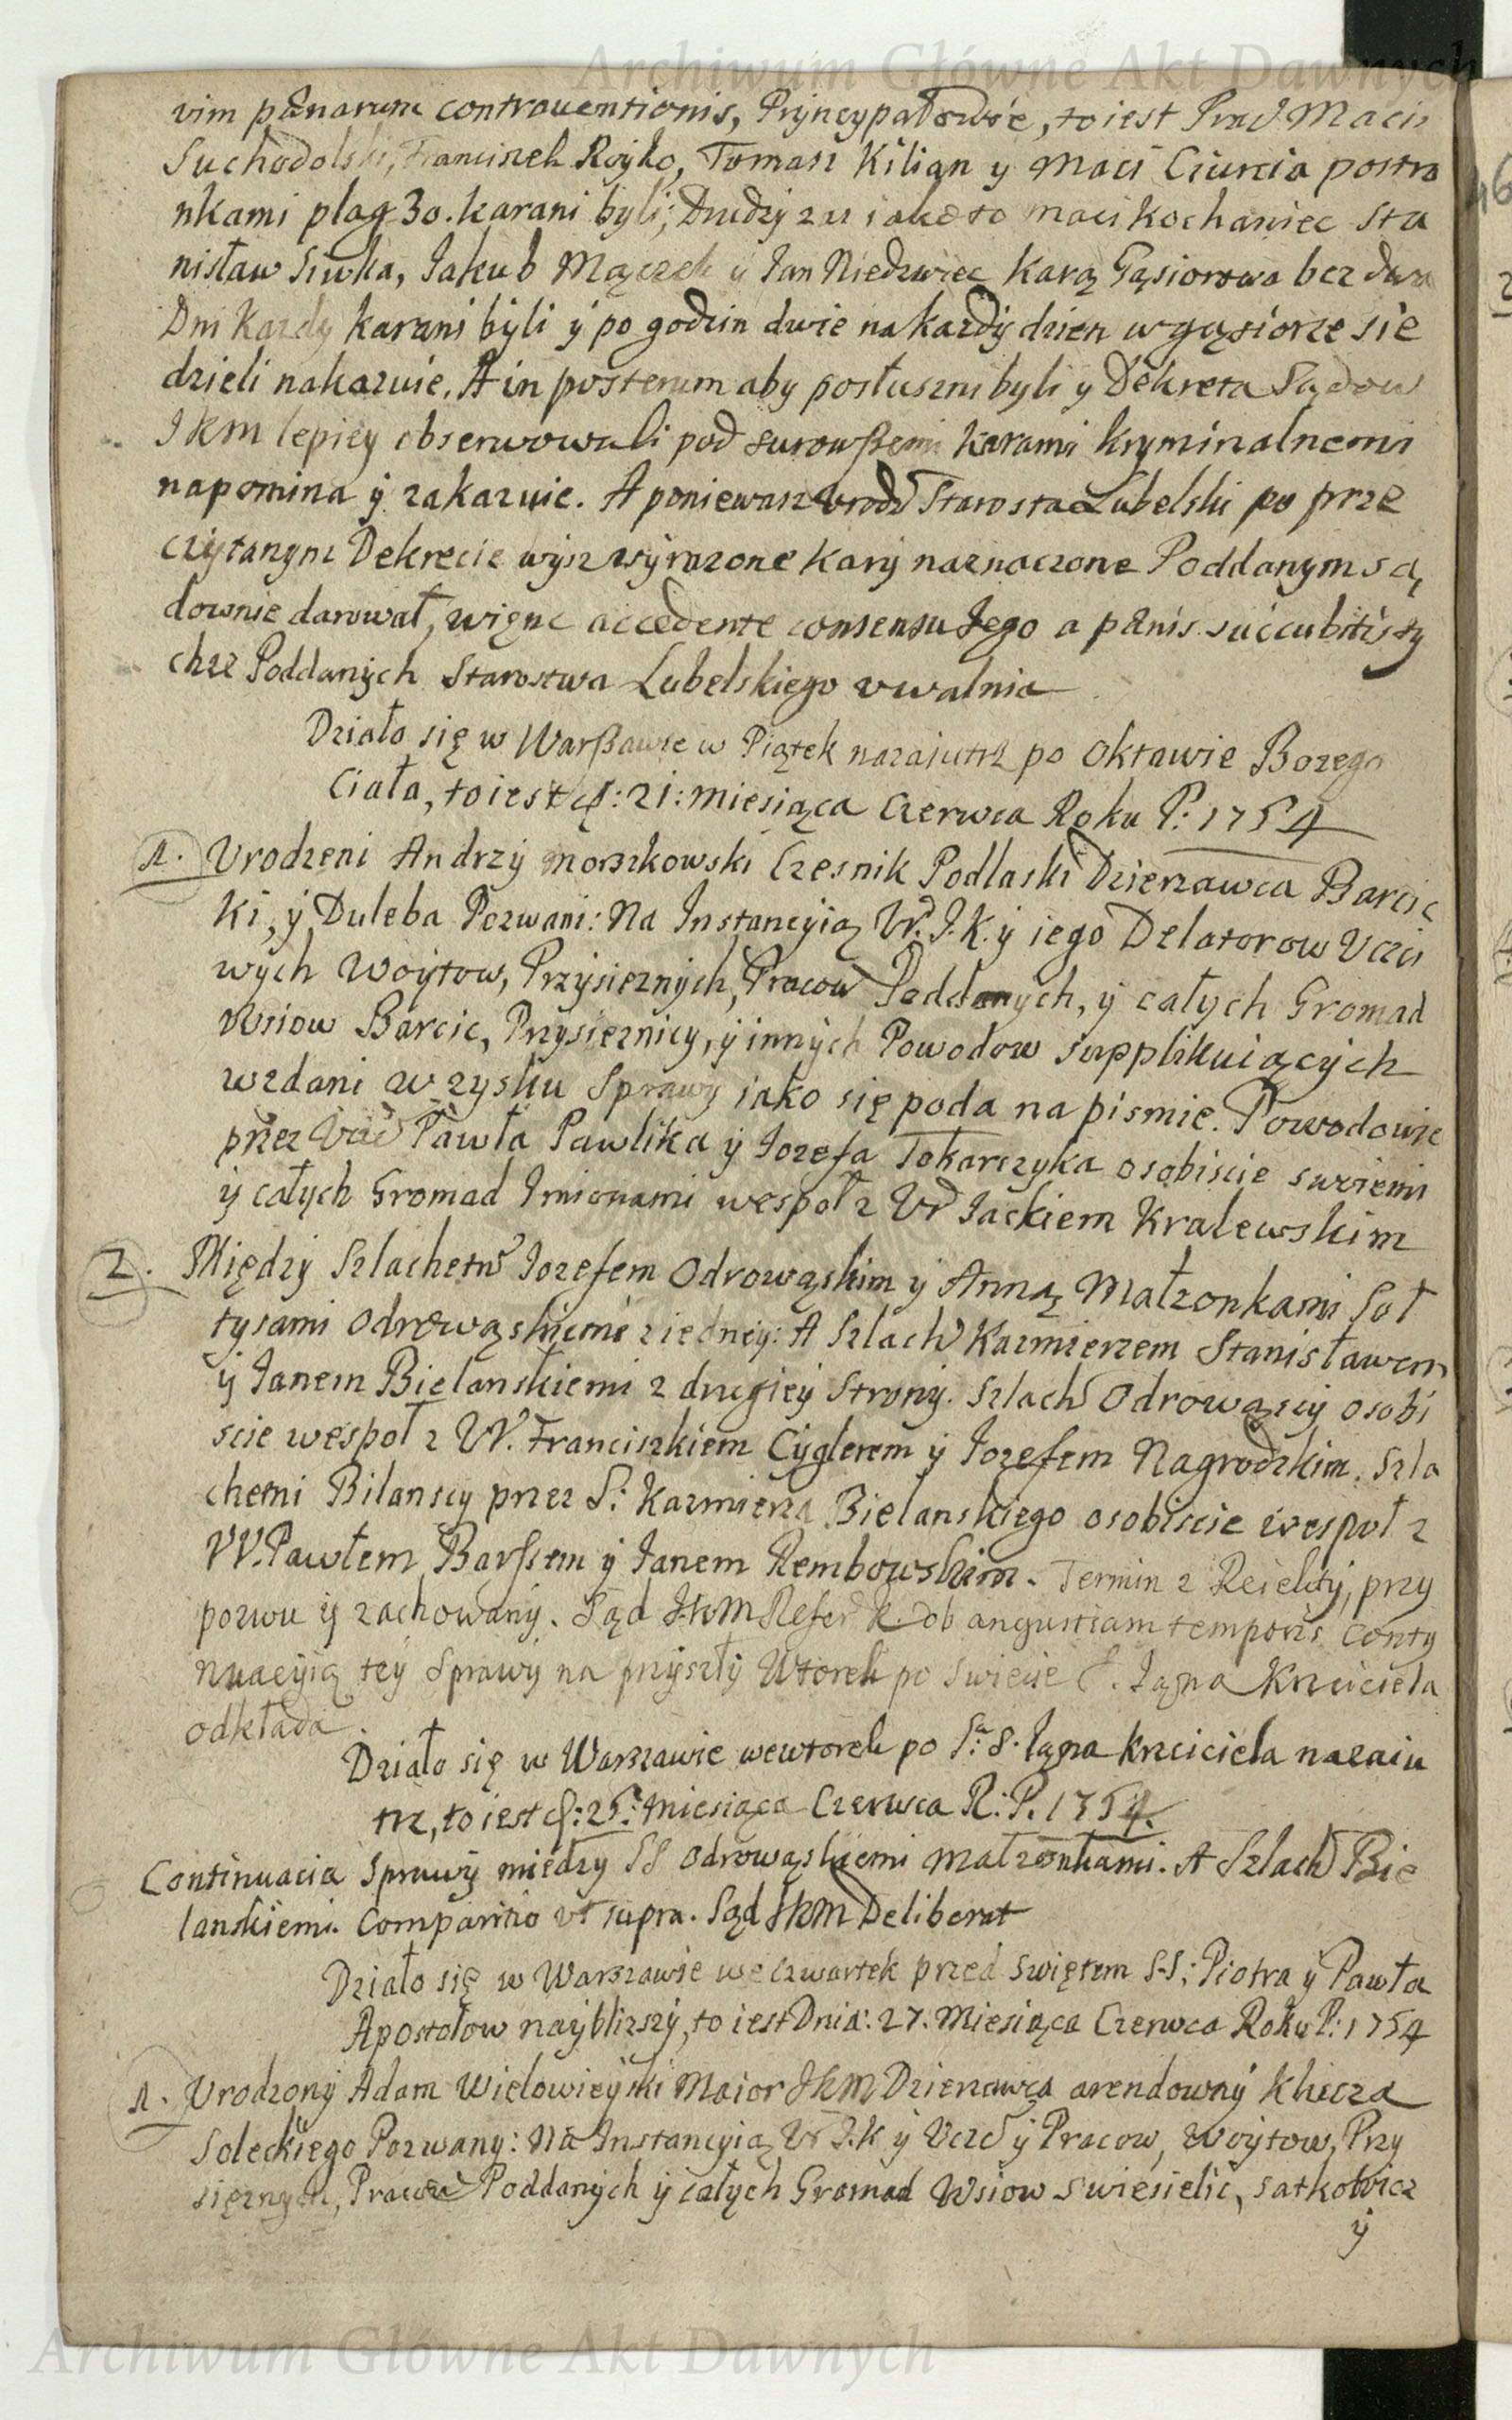 Archiwum Główne Akt Dawnych
vim pænarum contraventionis, Pryncypałowie, to iest Prac Maciı
Suchodolski, Franciszek Royko, Tomasz Kilian y Maci Ciurcia postro
nkami plag 30. karani byli; Drudzy zas iako to Maci Kochaniec Sta
nisław Siwka, Jakub Mączek y Jan Niedzwiec karą Gąsiorowa bez dwa
Dni kazdy karani byli y po godzin dwie na kazdy dzien w gąsiorze sie
dzieli nakazuie. A in posterum aby posłuszni byli y Dekreta Sądow
JKM lepiey obserwowali pod surowszemi karami kryminalnemi
napomina y zakazuie. A poniewasz Urodz Starosta Lubelski po prze
czytanym Dekrecie wysz wyrazone kary naznaczone Poddanym są
downie darował, więnc accedente consensu Jego a pænis succubitis ty
chze Poddanych Starostwa Lubelskiego uwalnia
Działo się w Warszawie w Piątek nazaiutrz po Oktawie Bozego
Ciała, to iest d: 21: miesiąca Czerwca Roku P: 1754
1. Urodzeni Andrzy Morszkowski Czesnik Podlaski Dzierzawca Barcic
ki, y Duleba Pozwani: Na Instancyią W. I. K. y iego Delatorow Uczci
wych Woytow, Przysieznych, Pracow Poddanych, y całych Gromad
Wsiow Barcic, Przysieznicy, y innych Powodow supplikuiących
wzdani w zysku Sprawy iako się poda na pismie. Powodowie
przez Ucc Pawła Pawlika y Jozefa Tokarczyka osobiscie swiemi
y całych Gromad Imionami wespoł z Ur Jackiem Kralewskim
2. Między Szlachetn Jozefem Odrowąskim y Anną Małzonkami Soł
tysami Odrowąskiemi z iedney: A Szlach Kazmierzem Stanisławem
y Janem Bielanskiemi z drugiey Strony. Szlach Odrowązcy osobi
scie wespoł z W. Franciszkiem Cyglerem y Jozefem Nagrodzkim. Szla
chetni Bilanscy przez S: Kazmierza Bielanskiego osobiscie wespoł z
W. Pawłem Barssem y Janem Rembowskim. Termin z Reiekty, przy
pozwu y zachowany. Sąd JKM Refer K. ob angustiam temporis conty
nuacyią tey Sprawy na przyszły Wtorek po swiecie S. Jana Krzciciela
odkłada.
Działo się w Warszawie wewtorek po S: S. Jana Krzciciela nazaiu
trz, to iest d: 25: Miesiąca Czerwca R: P. 1754.
Continuacia Sprawy miedzy SS Odrowąskiemi małzonkami. A Szlach Bie
lanskiemi. Comparitio ut supra. Sąd JKM Deliberat
Działo się w Warszawie we czwartek przed swiętem S.S: Piotra y Pawła
Apostołow nayblizszy, to iest Dnia: 27. Miesiąca Czerwca Roku P: 1754
1. Urodzony Adam Wielowieyski Maior JKM Dzierzawca arendowny Klucza
Soleckiego Pozwany: Na Instancyią Ur I. K y Uczc y Pracow, Woytow, Przy
sięznych, Pracow Poddanych y całych Gromad Wsiow Swiesielic, Satkowicz
y
Archiwum Główne Akt Dawnych